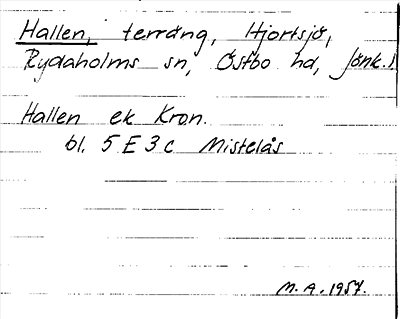 Hallen, terräng, Hjortsjö,
Rydaholms sn, Östbo hd, Jönk.l
Hallen ek Kron.
bl. 5 E 3 c Mistelås
M.A. 1957.